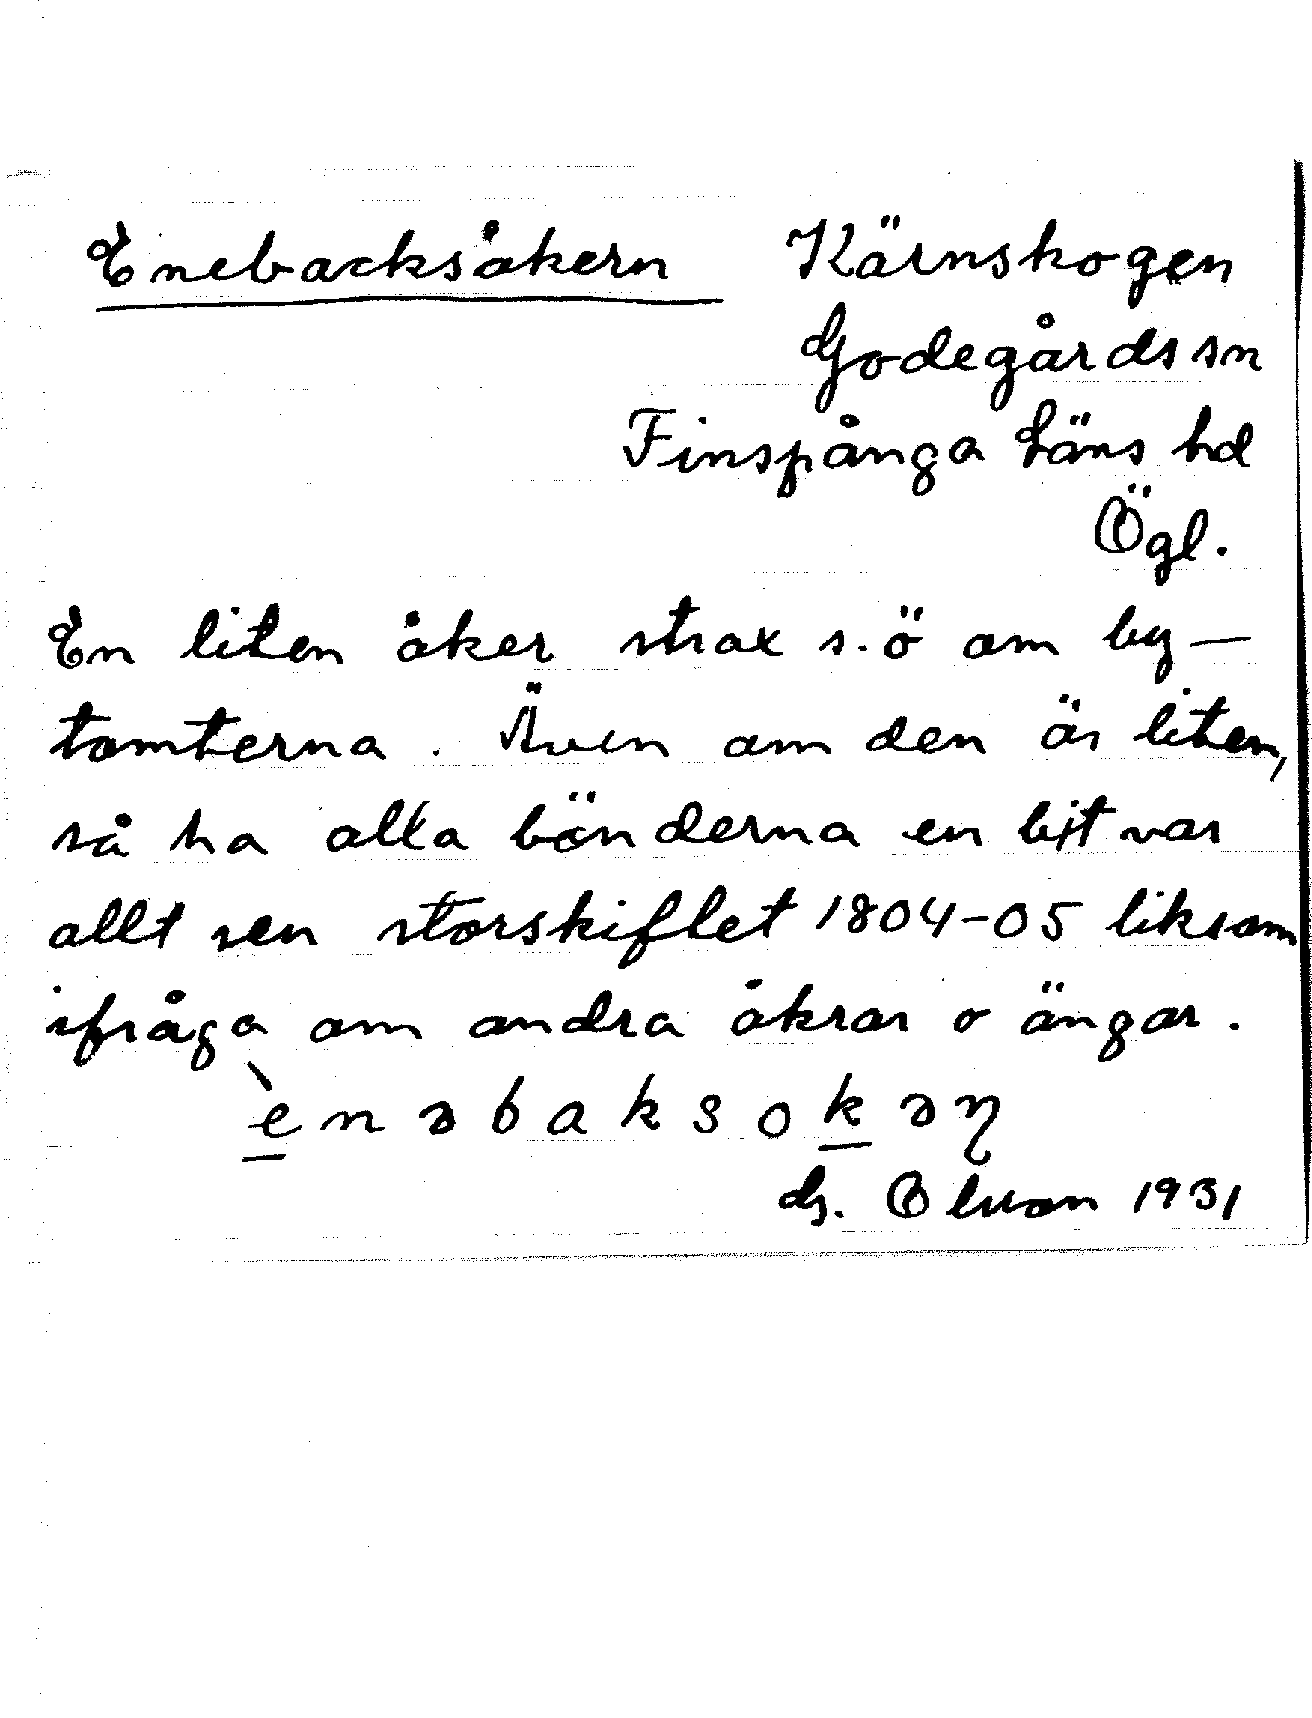 Enebacksåkern Kärnskogen
Godegårds sn
Finspånga läns hd
Ögl.
En liten åker strax s.ö om by-
tomterna. Även om den är liten,
så ha alla bönderna en bit var
allt sen storskiftet 1804-05 liksom
ifråga om andra åkrar o ängar.
èn ə b a k s o k ə n̥
G. Elvson 1931